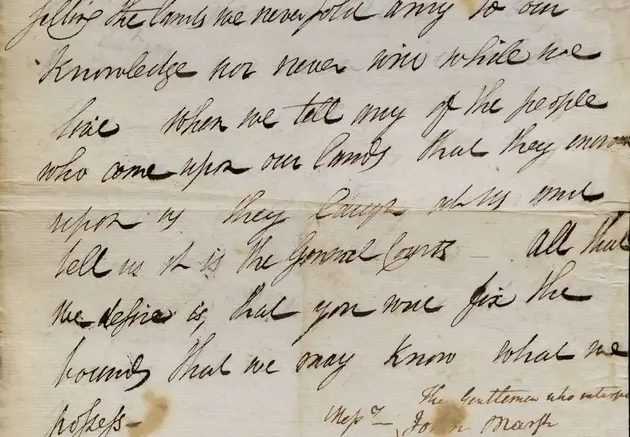 selling the lands we never sold any to our
Knowledge nor never will while we
live when we tell any of the people
who come upon our lands that they
upon us they laugh at us and
tell us it is the General Courts All that
we desire is, that you will fix the
bounds that we may Know what we
possess—
The Gentlemen who
Messrs John Marsh